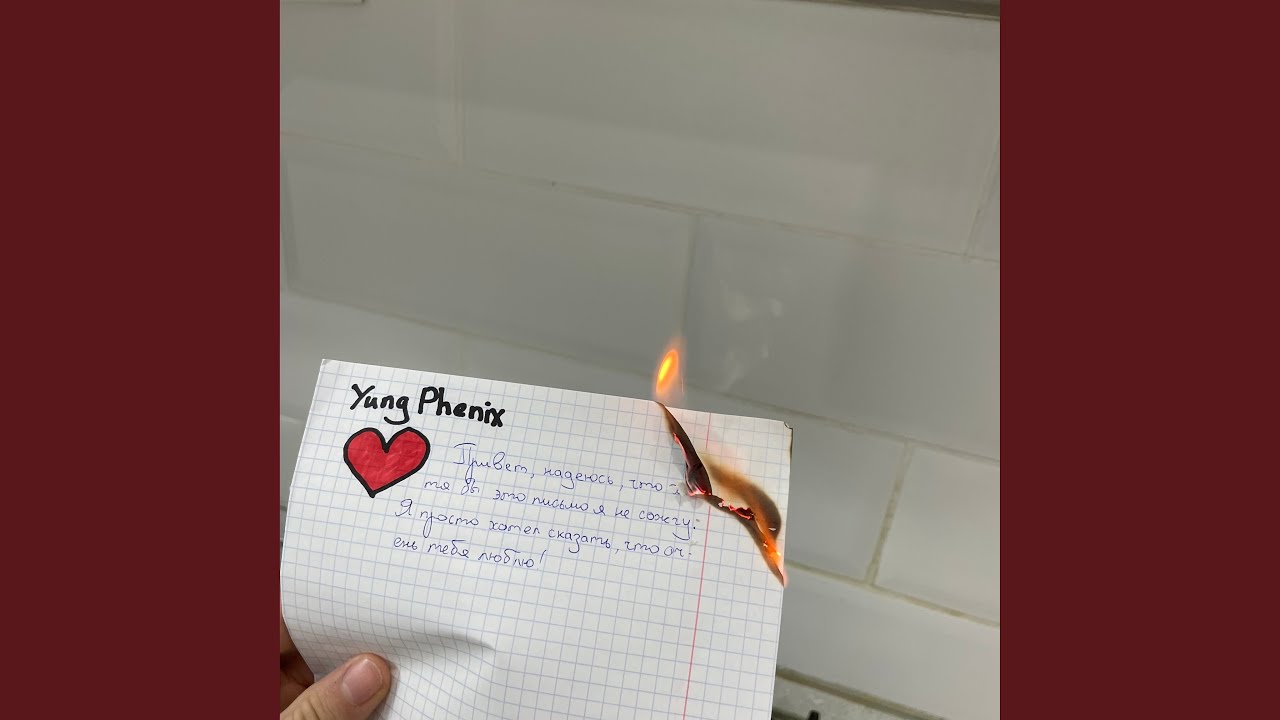 Yung Phenix
Привет, надеюсь, что х
тя бы это письмо я не сожгу:
Я просто хотел сказать, что оч-
ень тебя люблю!